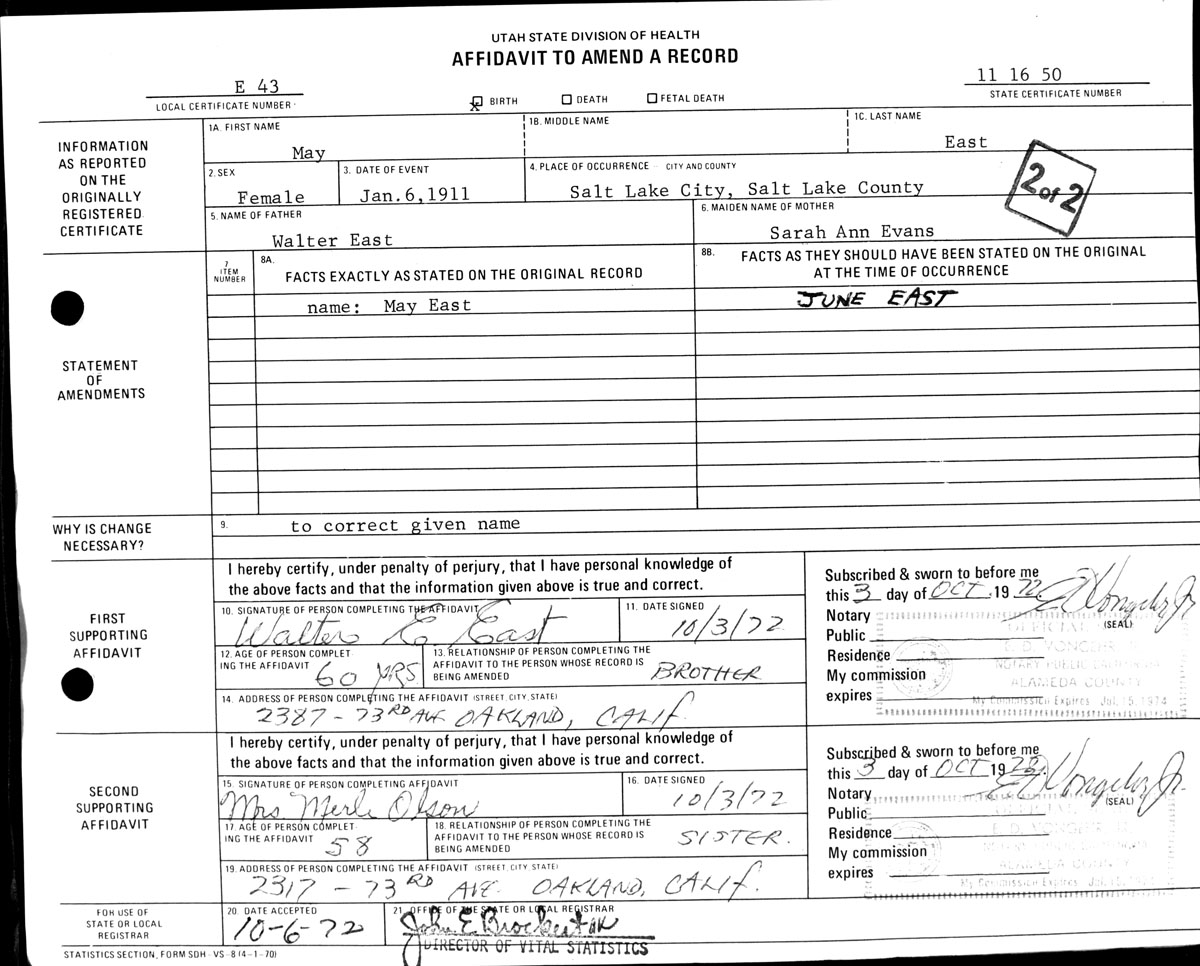 UTAH STATE DIVISION OF HEALTH
AFFIDAVIT TO AMEND A RECORD
E 43
LOCAL CERTIFICATE NUMBER
X BIRTH
DEATH
FETAL DEATH
11 16 50
STATE CERTIFICATE NUMBER
INFORMATION
AS REPORTED
ON THE
ORIGINALLY
REGISTERED
CERTIFICATE
1A. FIRST NAME
May
1B. MIDDLE NAME
1C. LAST NAME
East
2. SEX
Female
3. DATE OF EVENT
Jan.6,1911
4. PLACE OF OCCURRENCE - CITY AND COUNTY
Salt Lake City, Salt Lake County
2 of 2
5. NAME OF FATHER
Walter East
6. MAIDEN NAME OF MOTHER
Sarah Ann Evans
STATEMENT
OF
AMENDMENTS
7
ITEM
NUMBER
8A.
FACTS EXACTLY AS STATED ON THE ORIGINAL RECORD
8B. FACTS AS THEY SHOULD HAVE BEEN STATED ON THE ORIGINAL
AT THE TIME OF OCCURRENCE
name: May East
JUNE EAST
WHY IS CHANGE
NECESSARY?
9. to correct given name
FIRST
SUPPORTING
AFFIDAVIT
I hereby certify, under penalty of perjury, that I have personal knowledge of
the above facts and that the information given above is true and correct.
10. SIGNATURE OF PERSON COMPLETING THE AFFIDAVIT
Walter E East
11. DATE SIGNED
10/3/72
12. AGE OF PERSON COMPLET
ING THE AFFIDAVIT 60 YRS
13. RELATIONSHIP OF PERSON COMPLETING THE
AFFIDAVIT TO THE PERSON WHOSE RECORD IS
BEING AMENDED
BROTHER
14. ADDRESS OF PERSON COMPLETING THE AFFIDAVIT (STREET, CITY, STATE)
2387 - 73RD AVE OAKLAND, CALIF.
Subscribed & sworn to before me
this 3 day of OCT. 19 72.
Notary
Public
(SEAL)
Residence
My commission
expires
OFFICIAL
NOTARY PUBLIC CALIFORNIA
ALAMEDA COUNTY
My Commission Expires Jul. 15, 1974
SECOND
SUPPORTING
AFFIDAVIT
I hereby certify, under penalty of perjury, that I have personal knowledge of
the above facts and that the information given above is true and correct.
15. SIGNATURE OF PERSON COMPLETING AFFIDAVIT
Mrs. Merle Olson
16. DATE SIGNED
10/3/72
17. AGE OF PERSON COMPLET
ING THE AFFIDAVIT 58
18. RELATIONSHIP OF PERSON COMPLETING THE
AFFIDAVIT TO THE PERSON WHOSE RECORD IS
BEING AMENDED
SISTER.
19. ADDRESS OF PERSON COMPLETING THE AFFIDAVIT (STREET, CITY, STATE)
2317 - 73RD AVE. OAKLAND, CALIF.
Subscribed & sworn to before me
this 3 day of OCT 19 72.
Notary
Public
(SEAL)
Residence
My commission
expires
ALAMEDA COUNTY
My Commission Expires
FOR USE OF
STATE OR LOCAL
REGISTRAR
20. DATE ACCEPTED
10-6-72
21. OFFICE OF THE STATE OR LOCAL REGISTRAR
John E Brockert
DIRECTOR OF VITAL STATISTICS
STATISTICS SECTION, FORM SDH - VS - 8 (4-1-70)